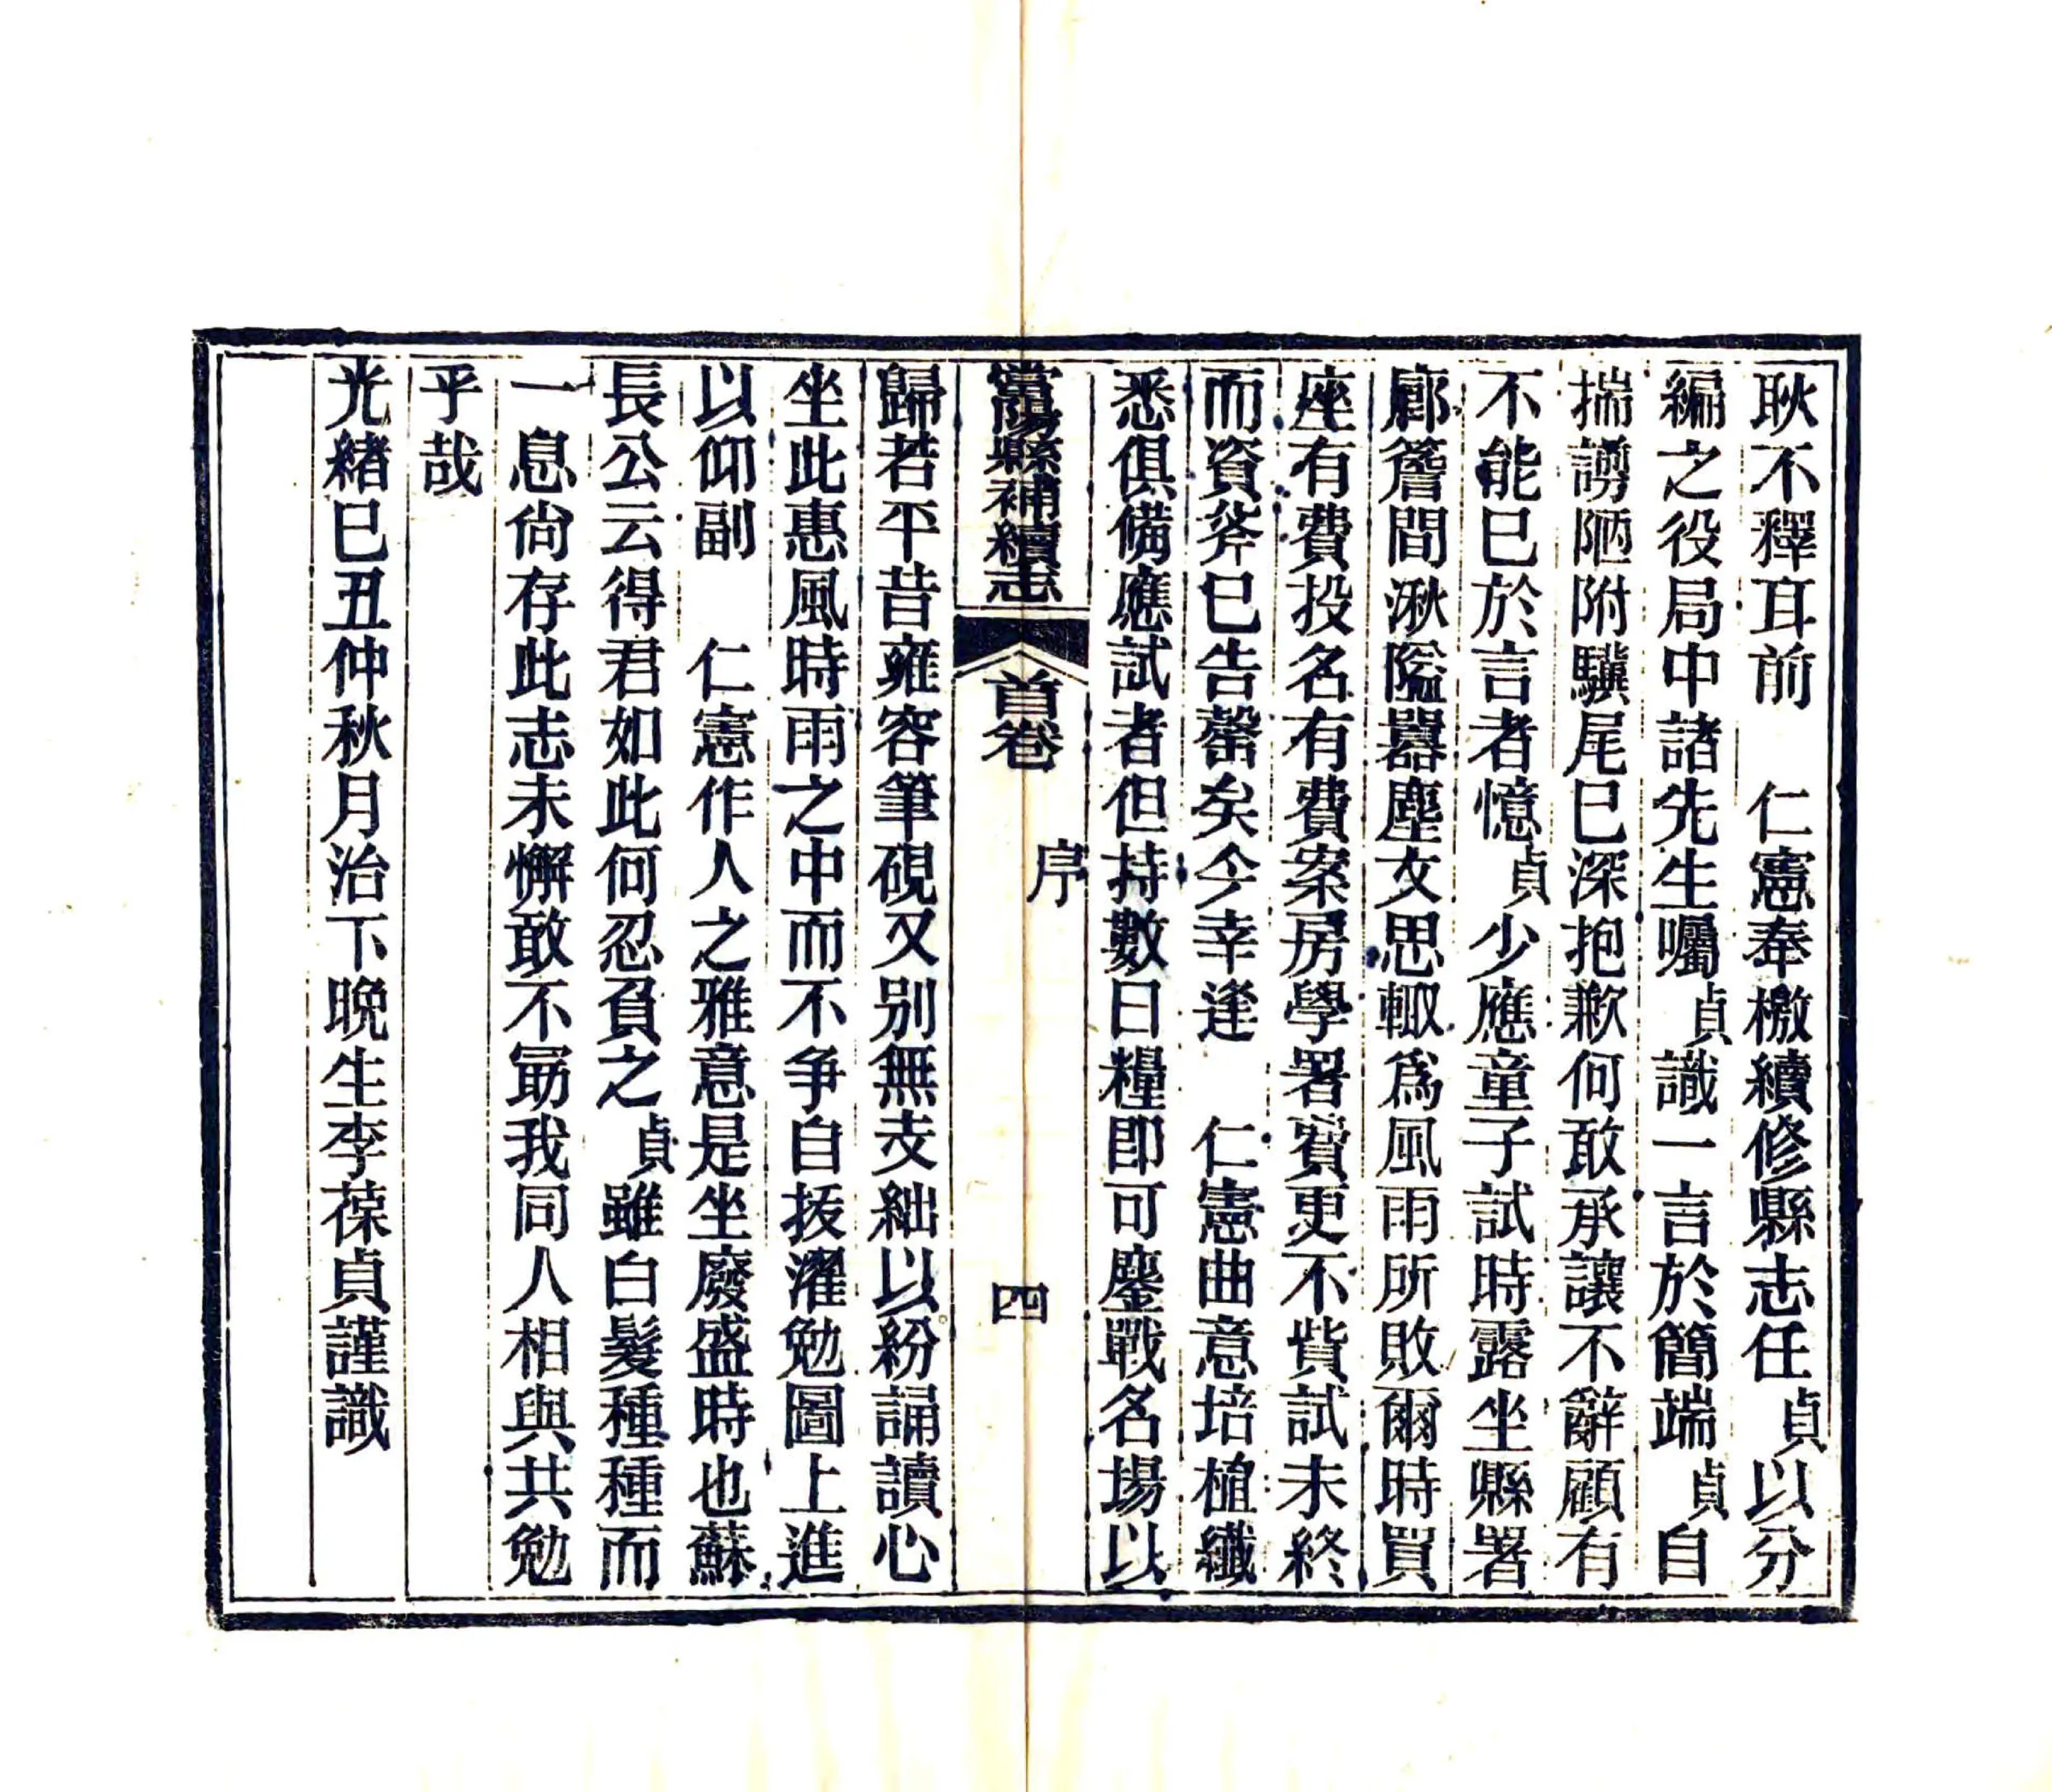 耿不釋耳前　仁憲奉檄續修縣志任貞以分
編之役局中諸先生囑貞識一言於簡端貞自
揣譾陋附驥尾已深抱歉何敢承讓不辭顧有
不能已於言者憶貞少應童子試時露坐縣署
廊簷間湫隘囂塵文思輙爲風雨所敗爾時買
座有費投名有費案房學署費更不貲試未終
而資斧已告罄矣今幸逢　仁憲曲意培植纖
悉俱備應試者但持數日糧即可鏖戰名場以
當陽縣補續志　首卷　序　四
歸若平昔雍容筆硯又别無支絀以紛誦讀心
坐此惠風時雨之中而不爭自拔濯勉圖上進
以仰副　仁憲作人之雅意是坐廢盛時也蘇
長公云得君如此何忍負之貞雖白髮種種而
一息尙存此志未懈敢不勗我同人相與共勉
乎哉
光緒己丑仲秋月治下晚生李葆貞謹識